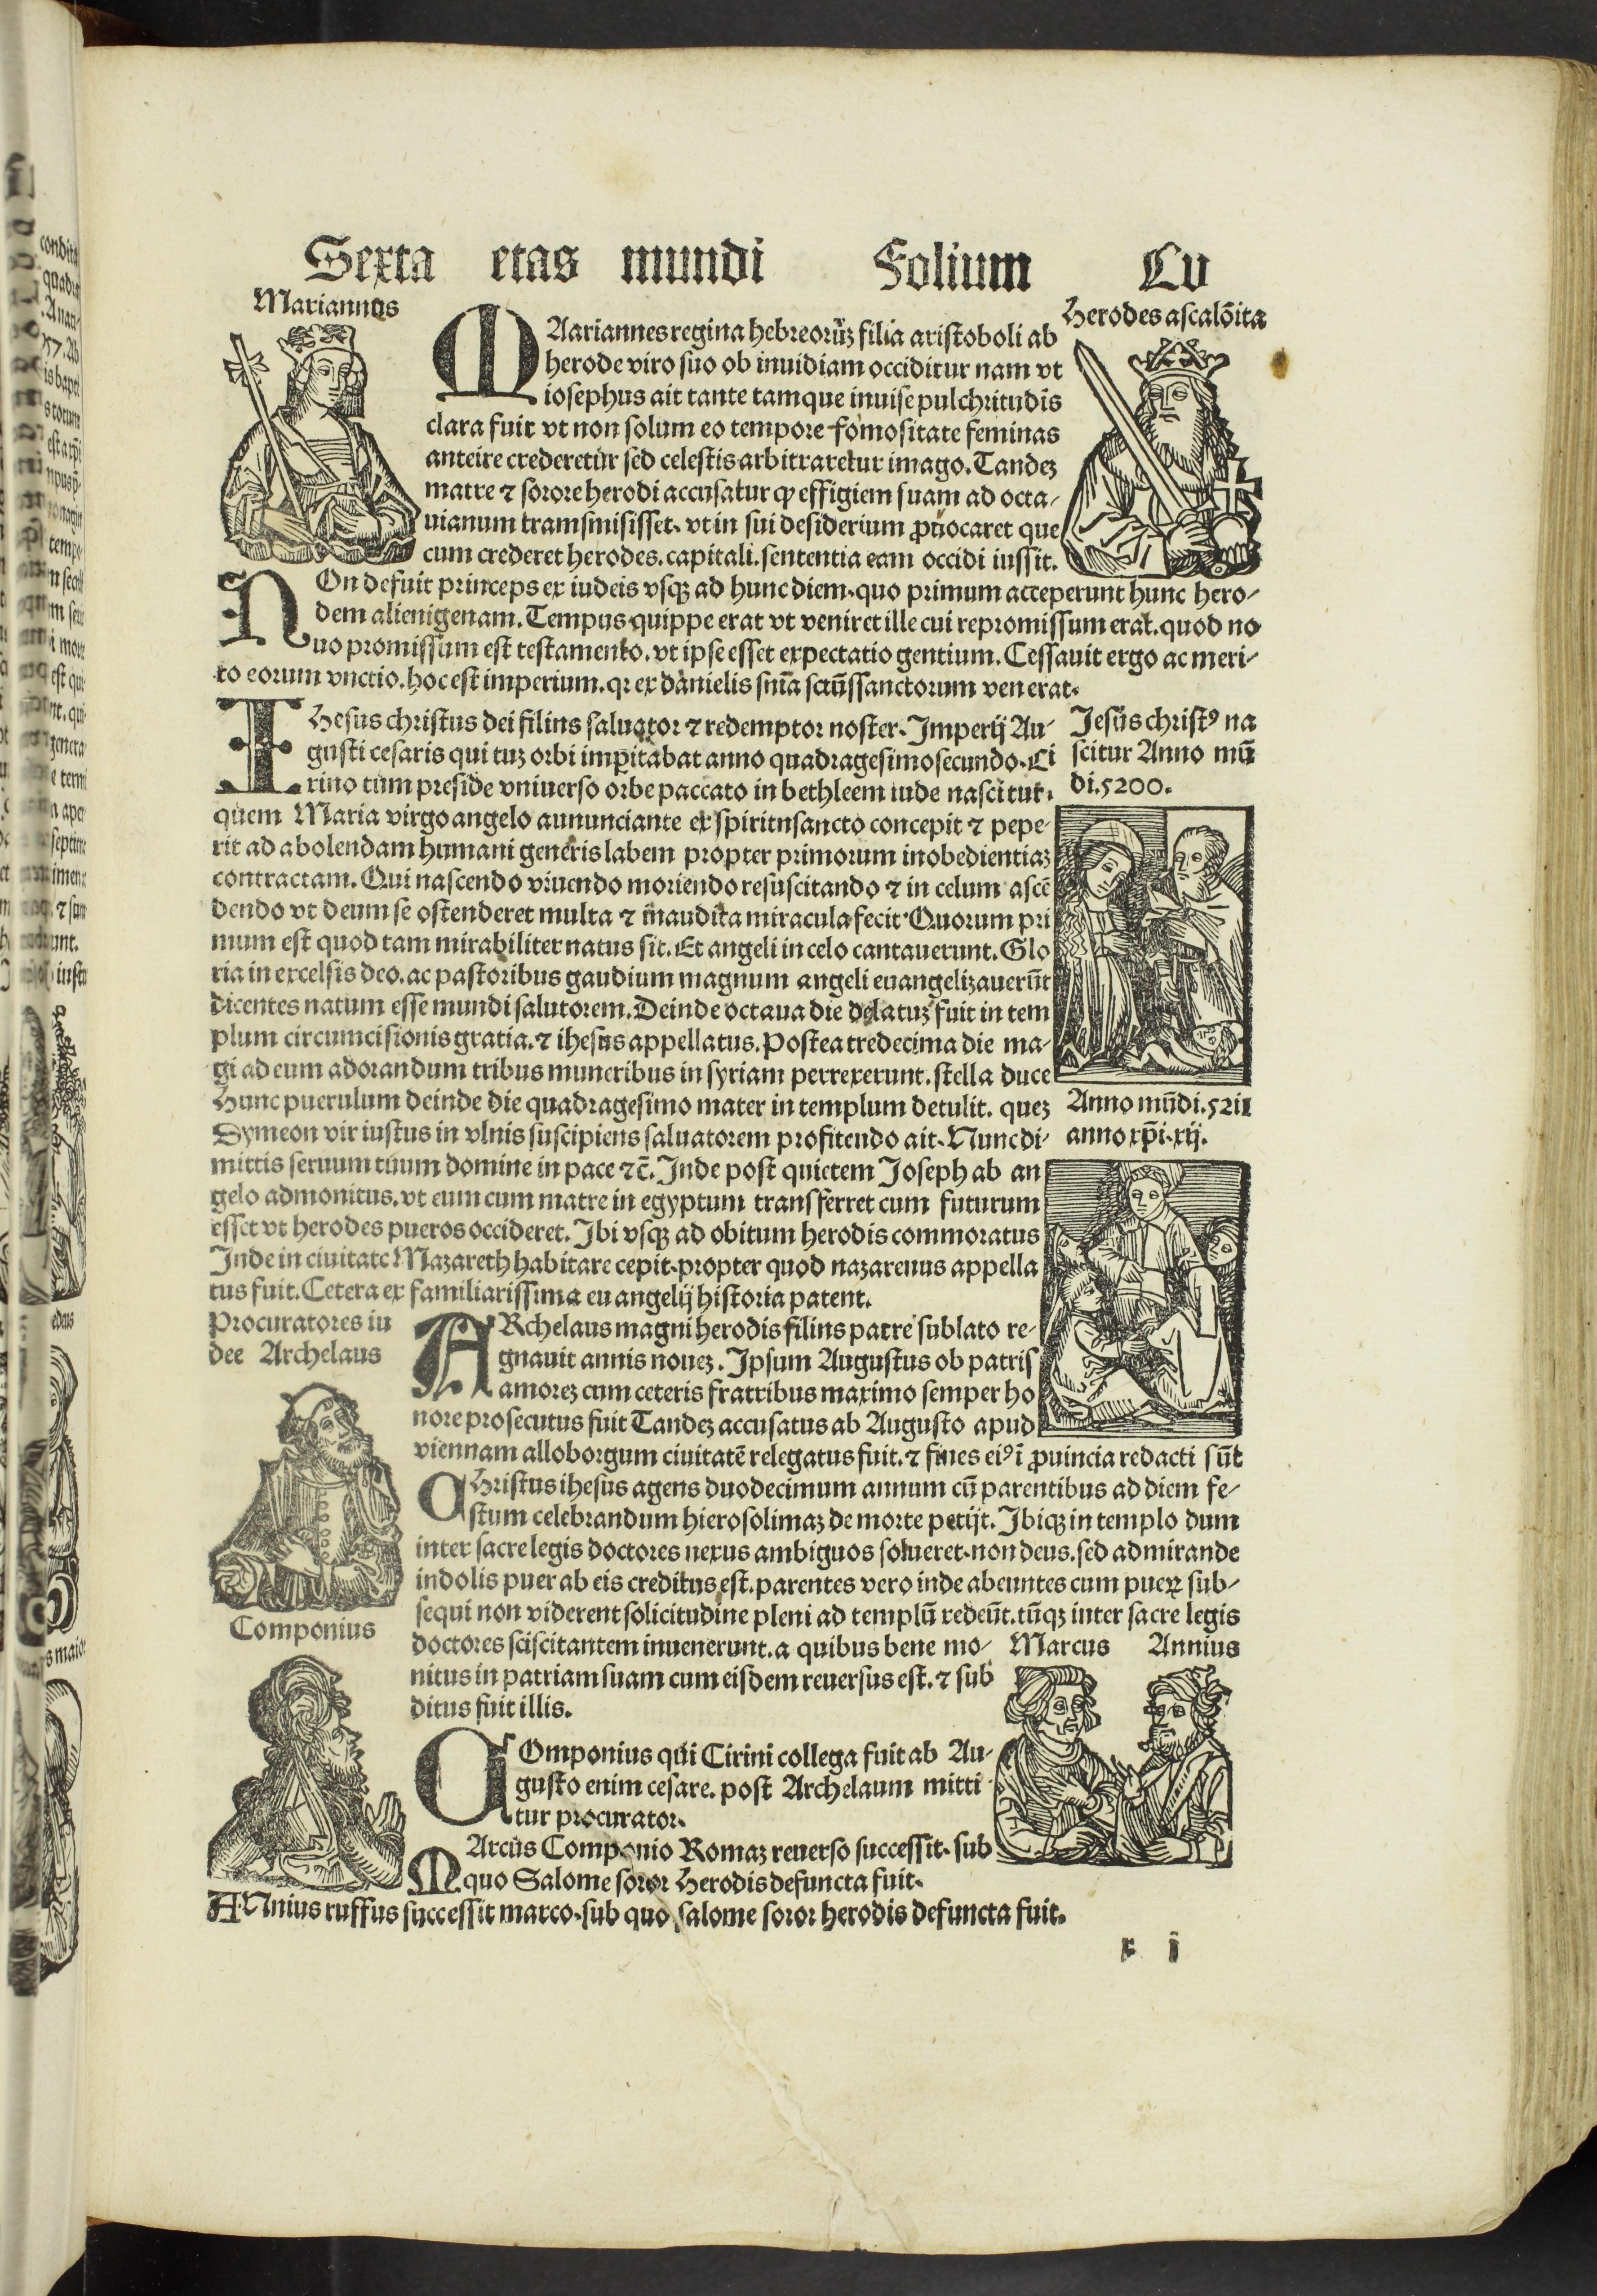 Sexta etas mundi Folium CV
Mariannes
Herodes ascalōita
MAariannes regina hebreorūʒ filia aristoboli ab
herode viro suo ob inuidiam occiditur nam vt
iosephus ait tante tamque inuise pulchritudīs
clara fuit vt non solum eo tempore fomositate feminas
anteire crederetur sed celestis arbitraretur imago. Tandeʒ
matre ⁊ sorore herodi accusatur ꝙ effigiem suam ad octa-
uianum transmisisset. vt in sui desiderium ꝓuocaret que
cum crederet herodes. capitali. sententia eam occidi iussit.
NOn defuit princeps ex iudeis vsqʒ ad hunc diem. quo primum acceperunt hunc hero-
dem alienigenam. Tempus quippe erat vt veniret ille cui repromissum erat. quod no
uo promissum est testamento. vt ipse esset expectatio gentium. Cessauit ergo ac meri-
to eorum vnctio. hoc est imperium. qꝛ ex danielis snīa sctūssanctorum venerat.
IHesus christus dei filius saluator ⁊ redemptor noster. Imperij Au-
gusti cesaris qui tuʒ orbi imꝑitabat anno quadragesimosecundo. Ci
rino tum preside vniuerso orbe paccato in bethleem iude nascitur.
quem Maria virgo angelo annunciante ex spiritusancto concepit ⁊ pepe-
rit ad abolendam humani generis labem propter primorum inobedientiaʒ
contractam. Qui nascendo viuendo moriendo resuscitando ⁊ in celum ascē
dendo vt deum se ostenderet multa ⁊ inaudita miracula fecit. Quorum pri
mum est quod tam mirabiliter natus sit. Et angeli in celo cantauerunt. Glo
ria in excelsis deo. ac pastoribus gaudium magnum angeli euangelizauerūt
dicentes natum esse mundi salutorem. Deinde octaua die delatuʒ fuit in tem
plum circumcisionis gratia. ⁊ ihesus appellatus. Postea tredecima die ma-
gi ad eum adorandum tribus muneribus in syriam perrexerunt. stella duce
Hunc puerulum deinde die quadragesimo mater in templum detulit. queʒ
Symeon vir iustus in vlnis suscipiens saluatorem profitendo ait. Nunc di-
mittis seruum tuum domine in pace ⁊c̄. Inde post quietem Joseph ab an
gelo admonitus. vt eum cum matre in egyptum transferret cum futurum
esset vt herodes pueros occideret. Ibi vsqʒ ad obitum herodis commoratus
Inde in ciuitate Nazareth habitare cepit. propter quod nazarenus appella
tus fuit. Cetera ex familiarissima euangelij historia patent.
Jesūs christꝰ na
scitur Anno mū
di. 5200.
Anno mūdi. 5211
anno xp̄i. xij.
Procuratores iu
dee Archelaus
ARchelaus magni herodis filius patre sublato re-
gnauit annis noueʒ. Ipsum Augustus ob patris
amoreʒ cum ceteris fratribus maximo semper ho
nore prosecutus fuit Tandeʒ accusatus ab Augusto apud
viennam alloborgum ciuitatē relegatus fuit. ⁊ fines eiꝰ ī ꝓuincia redacti sūt
CHristus ihesus agens duodecimum annum cū parentibus ad diem fe-
stum celebrandum hierosolimaʒ de morte petijt. Ibiqʒ in templo dum
inter sacre legis doctores nexus ambiguos solueret. non deus. sed admirande
indolis puer ab eis creditus est. parentes vero inde abeuntes cum pueꝝ sub-
sequi non viderent solicitudine pleni ad templū redeūt. tūqʒ inter sacre legis
doctores sciscitantem inuenerunt. a quibus bene mo-
nitus in patriam suam cum eisdem reuersus est. ⁊ sub
ditus fuit illis.
Componius
Marcus Annius
COmponius qui Cirini collega fuit ab Au-
gusto enim cesare. post Archelaum mitti
tur procurator.
MArcus Componio Romaʒ reuerso successit. sub
quo Salome soror Herodis defuncta fuit.
ANnius ruffus successit marco. sub quo salome soror herodis defuncta fuit.
r i